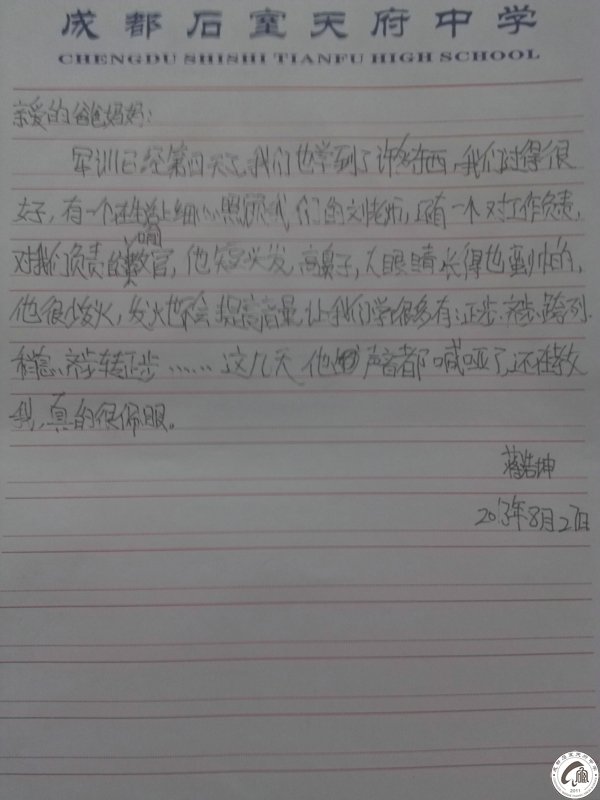 成都石室天府中学
CHENGDU SHISHI TIANFU HIGH SCHOOL
亲爱的爸爸妈妈:
军训已经第四天了,我们也学到了许多东西,我们过得很
好,有一个在生活上细心照顾我们的刘老师,还有一个对工作负责,
对我们负责的教官,他短头发,高鼻子,大眼睛长得也蛮帅的,
他很少发火,发火也会提高音量,让我们学很多有:正步.齐步.跨列.
稍息.齐步转正步……这几天他声音都喊哑了,还在教
我,真的很佩服。
蒋浩坤
2013年8月27日
2011